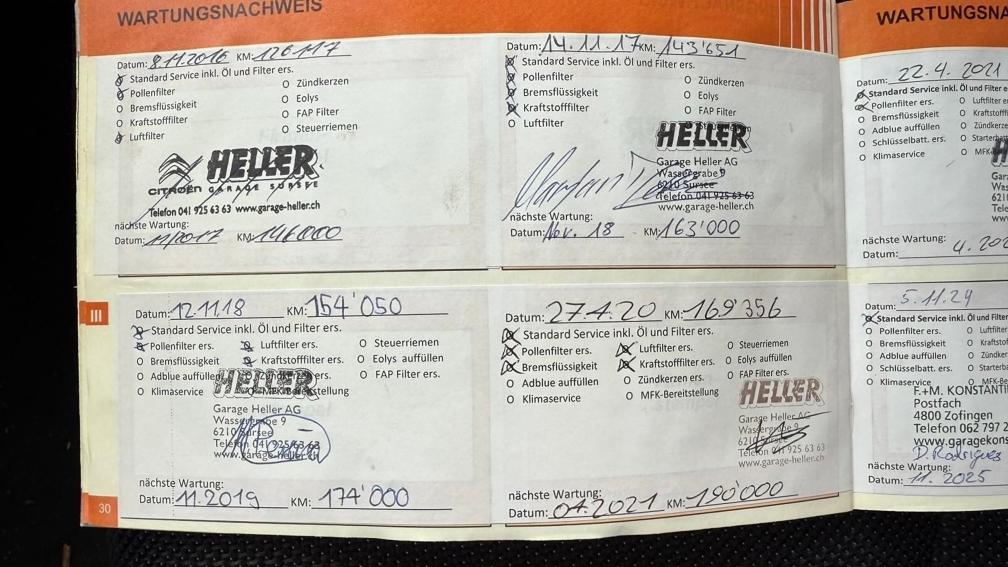 WARTUNGSNACHWEIS
Datum: 8.11.2016 KM: 126'117
Standard Service inkl. Öl und Filter ers.
Pollenfilter
O Zündkerzen
O Bremsflüssigkeit
O Eolys
O Kraftstofffilter
O FAP Filter
Luftfilter
O Steuerriemen
HELLER
CITROËN GARAGE SURSEE
Telefon 041 925 63 63 www.garage-heller.ch
nächste Wartung:
Datum: 11/2017 KM: 146000
Datum: 14.11.17 KM: 143'651
Standard Service inkl. Öl und Filter ers.
Pollenfilter
O Zündkerzen
Bremsflüssigkeit
O Eolys
Kraftstofffilter
O FAP Filter
O Luftfilter
HELLER
Garage Heller AG
Wassergrabe 9
6210 Sursee
Telefon 041 925 63 63
www.garage-heller.ch
nächste Wartung:
Datum: Nov. 18 KM: 163'000
III
Datum: 12.11.18 KM: 154'050
Standard Service inkl. Öl und Filter ers.
Pollenfilter ers. Luftfilter ers. O Steuerriemen
O Bremsflüssigkeit Kraftstofffilter ers. O Eolys auffüllen
O Adblue auffüllen Zündkerzen ers. O FAP Filter ers.
O Klimaservice MFK-Bereitstellung
HELLER
Garage Heller AG
Wassergrabe 9
6210 Sursee
Telefon 041 925 63 63
www.garage-heller.ch
nächste Wartung:
Datum: 11.2019 KM: 174'000
30
Datum: 27.4.20 KM: 169'356
Standard Service inkl. Öl und Filter ers.
Pollenfilter ers. Luftfilter ers. O Steuerriemen
Bremsflüssigkeit Kraftstofffilter ers. O Eolys auffüllen
O Adblue auffüllen O Zündkerzen ers. O FAP Filter ers.
O Klimaservice O MFK-Bereitstellung
HELLER
Garage Heller AG
Wassergrabe 9
6210 Sursee
Telefon 041 925 63 63
www.garage-heller.ch
nächste Wartung:
Datum: 04.2021 KM: 190'000
WARTUNGSNA
Datum: 22.4.2021
Standard Service inkl. Öl und Filter e
Pollenfilter ers. O Luftfilter e
O Bremsflüssigkeit O Kraftstoff
O Adblue auffüllen O Zündkerze
O Schlüsselbatt. ers. O Starterba
O Klimaservice O MFK-
nächste Wartung:
Datum: 4.202
5.11.24
Datum:
Standard Service inkl. Öl und Filter
O Pollenfilter ers. O Luftfilter
O Bremsflüssigkeit O Kraftsto
O Adblue auffüllen O Zündker
O Schlüsselbatt. ers. O Starterb
O Klimaservice O MFK-Be
F.+M. KONSTANTI
Postfach
4800 Zofingen
Telefon 062 797 2
www.garagekons
D. Rodrigues
nächste Wartung:
Datum: 11.2025